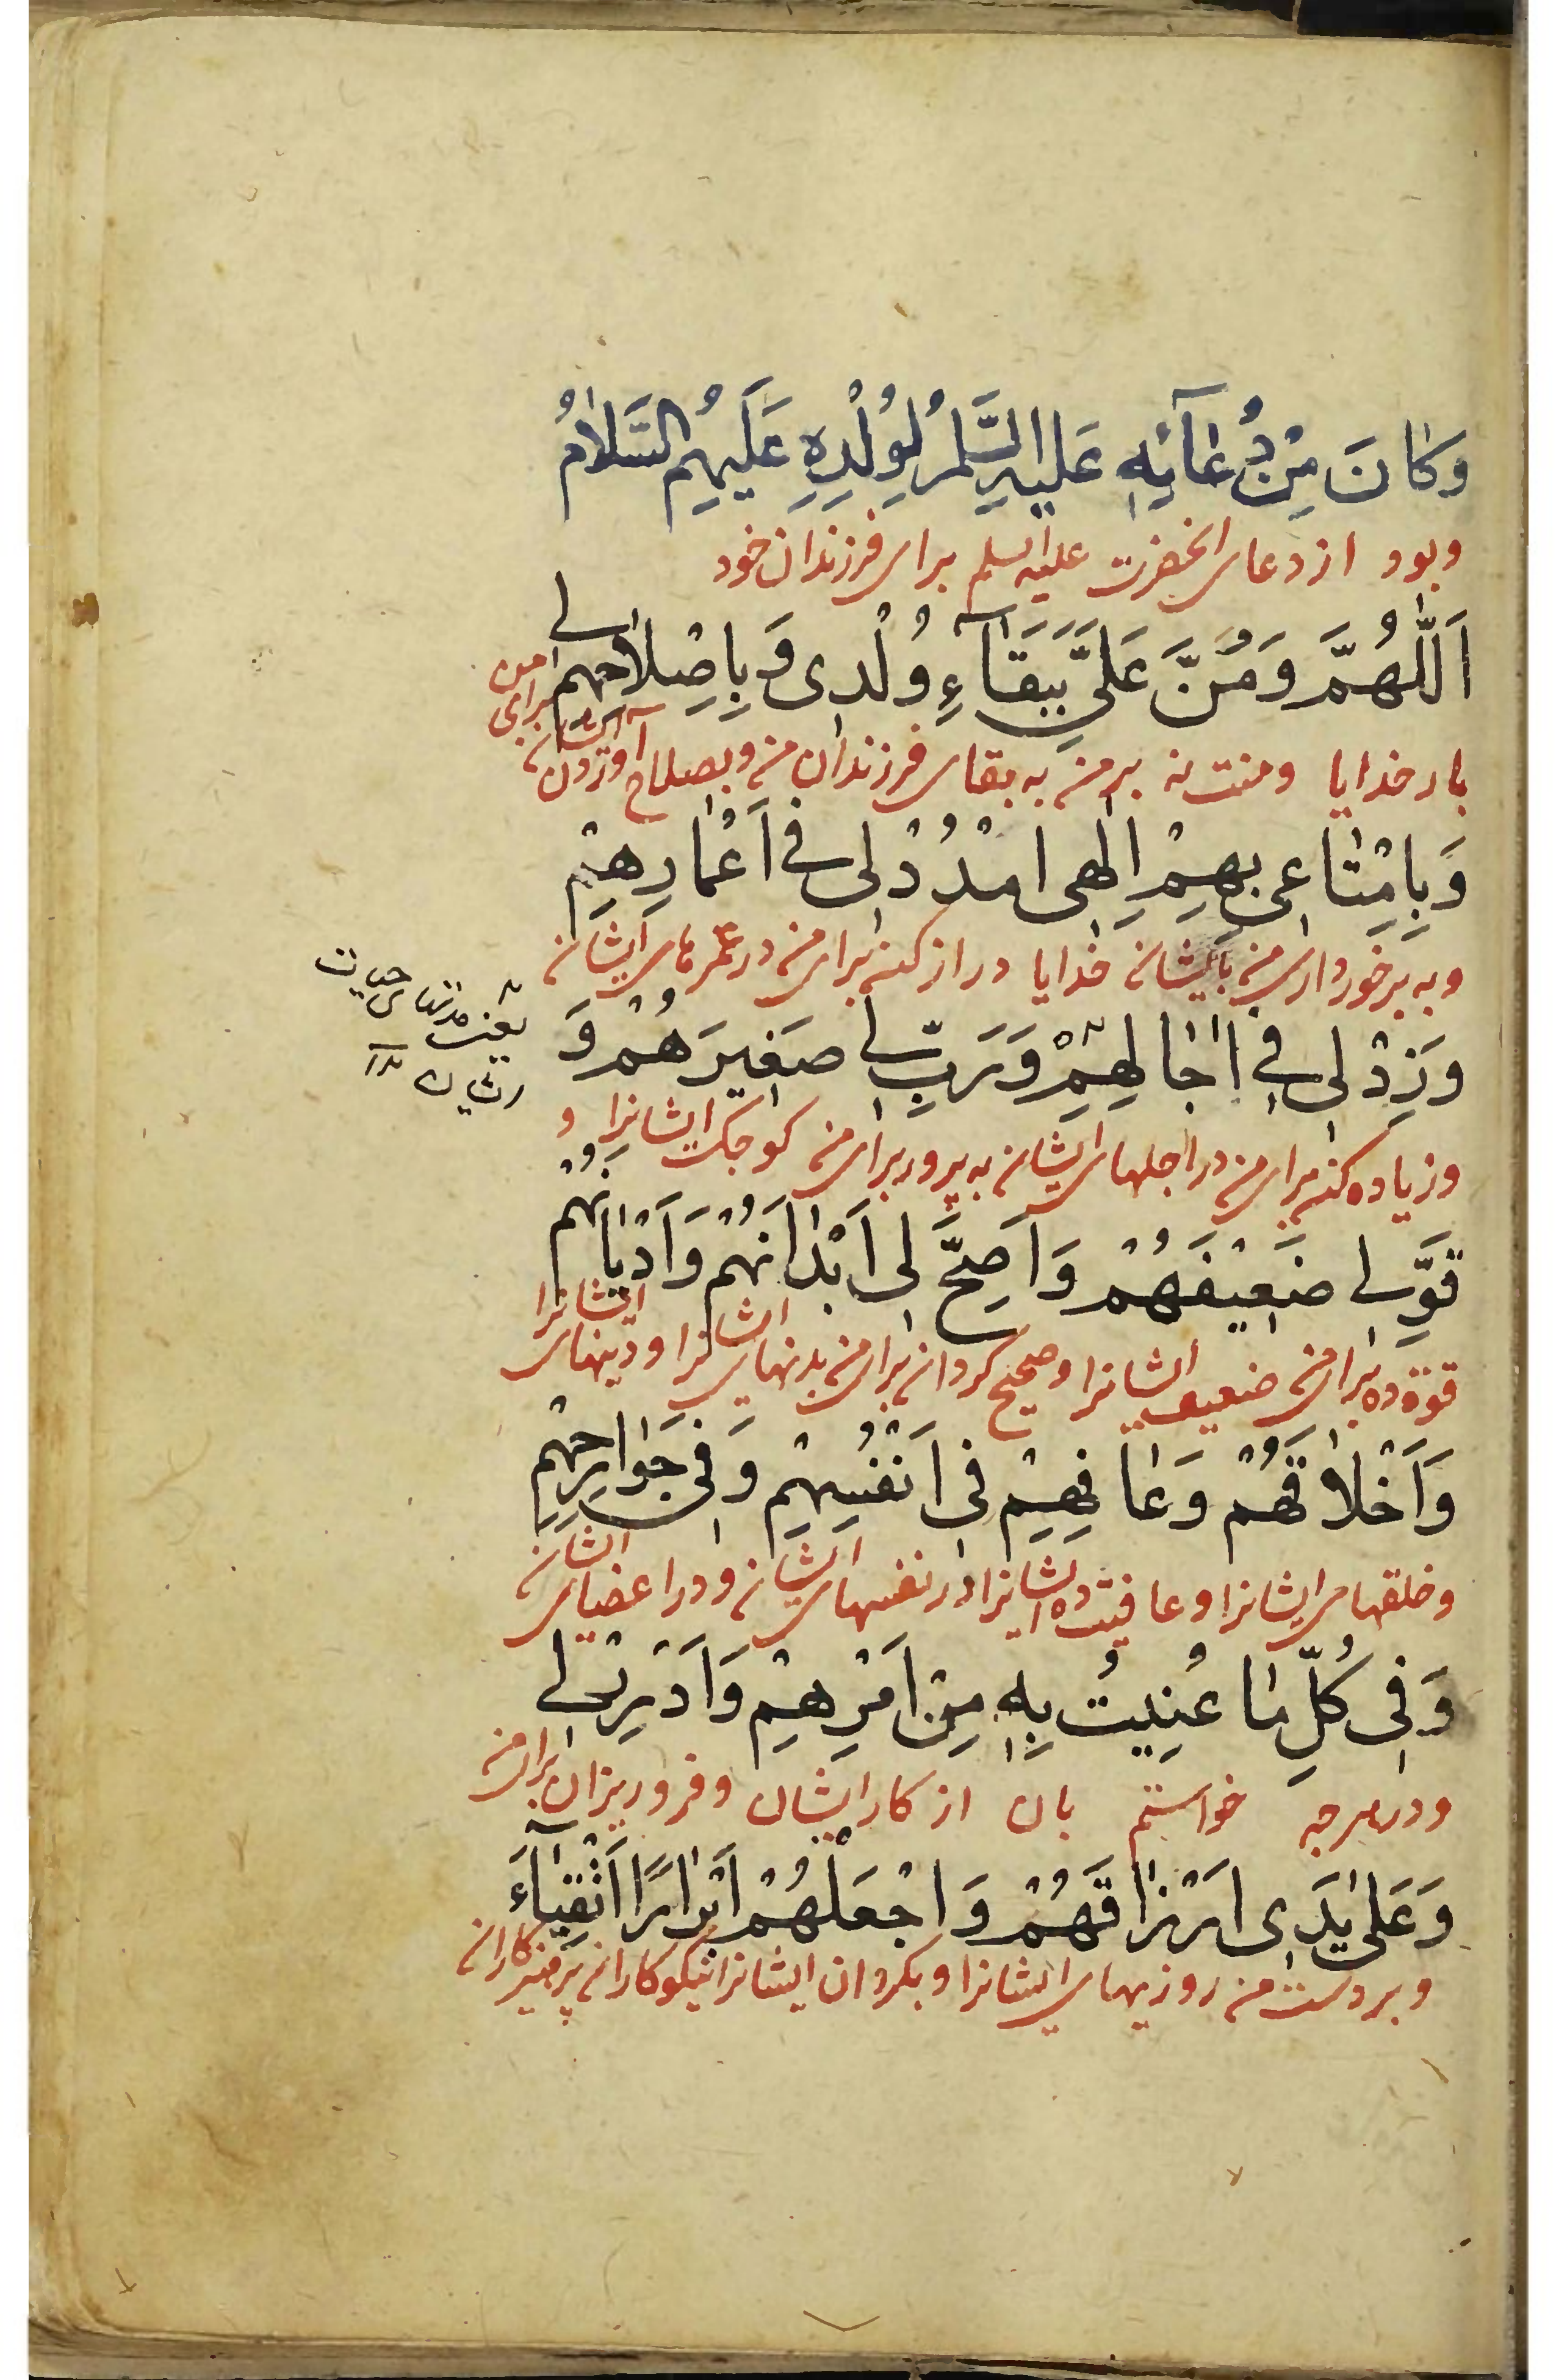 وَكَانَ مِنْ دُعَآئِهِ عَلَيْهِ السَّلَمُ لِوُلْدِهِ عَلَيْهِمُ السَّلَامُ
وبود از دعای انحضرت علیه السلم برای فرزندان خود
اَللّٰهُمَّ وَمُنَّ عَلَیَّ بِبَقَآءِ وُلْدی وَبِاِصْلَاحِهِم لی
بار خدایا ومنت نه بر من به بقای فرزندان من وبصلاح آوردن ایشان برای من
وَبِاِمْتَاعی بِهِمْ اِلٰهی امْدُدْ لی فی اَعْمَارِهِمْ
وبه برخورداری من بایشان خدایا دراز کن برای من در عمرهای ایشان
وَزِدْ لی فی اٰجَالِهِمْ وَرَبِّ لی صَغِیرَهُمْ وَ
یعنی مدتهای حیات
ایشان
وزیاده کن برای من در اجلهای ایشان به پرور برای من کوچک ایشانرا و
قَوِّ لی ضَعِیفَهُمْ وَاَصِحَّ لی اَبْدَانَهُمْ وَاَدْیَانَهُمْ
قوّة ده برای من ضعیف ایشانرا وصحیح گردان برای من بدنهای ایشانرا ودینهای ایشانرا
وَاَخْلَاقَهُمْ وَعَافِهِمْ فی اَنْفُسِهِمْ وَفی جَوَارِحِهِمْ
وخلقهای ایشانرا وعافیت ده ایشانرا در نفسهای ایشان ودر اعضای ایشان
وَفی كُلِّ مَا عُنِیتُ بِهِ مِنْ اَمْرِهِمْ وَاَدْرِرْ لی
ودر هرچه خواستم بان از کار ایشان وفرو ریزان برای من
وَعَلیٰ یَدَی اَرْزَاقَهُمْ وَاجْعَلْهُمْ اَبْرَارًا اَتْقِیَآءَ
وبر دست من روزیهای ایشانرا وبکردان ایشانرا نیکوکاران پرهیزکاران